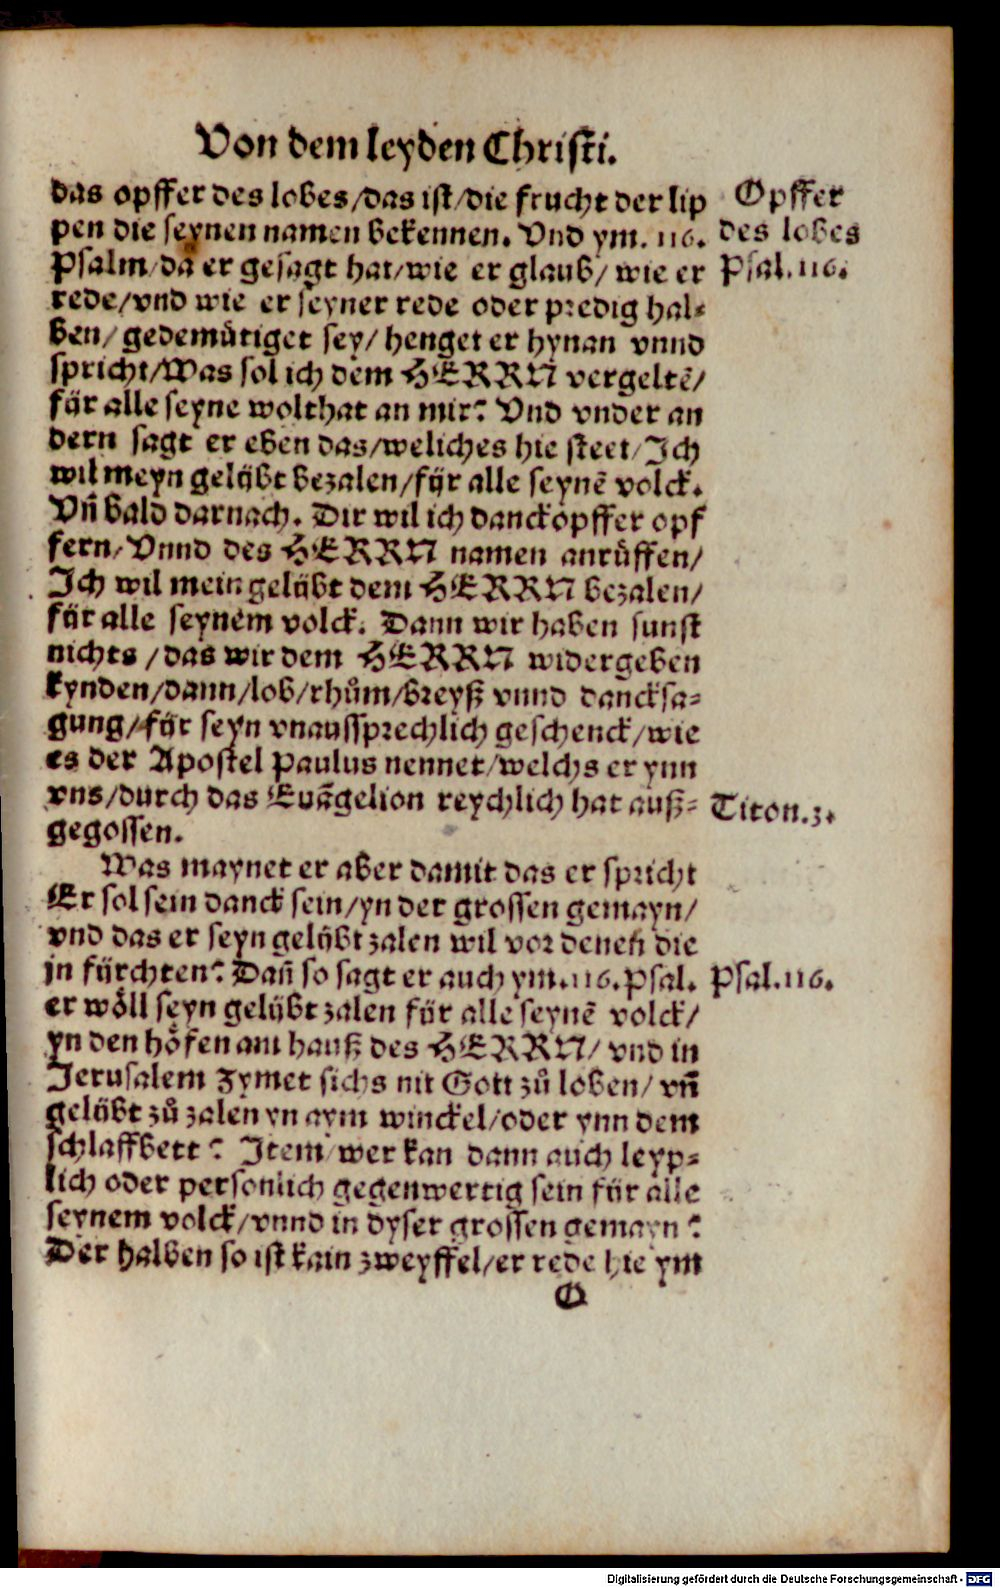 Von dem leyden Christi.
das opffer des lobes/das ist/die frucht der lip
pen die seynen namen bekennen. Vnd ym. 116.
Psalm/da er gesagt hat/wie er glaub/ wie er
rede/vnd wie er seyner rede oder predig hal⸗
ben/ gedemütiget sey/ henget er hynan vnnd
spricht/Was sol ich dem HERRN vergeltē/
für alle seyne wolthat an mir? Vnd vnder an
dern sagt er eben das/weliches hie steet/Ich
wil meyn gelübt bezalen/für alle seynē volck.
Vñ bald darnach. Dir wil ich danckopffer opf
fern/Vnnd des HERRN namen anrůffen/
Ich wil mein gelübt dem HERRN bezalen/
für alle seynem volck. Dann wir haben sunst
nichts /das wir dem HERRN widergeben
kynden/dann/lob/rhům/breyß vnnd dancksa⸗
gung/für seyn vnaussprechlich geschenck/wie
es der Apostel Paulus nennet/welchs er ynn
vns/durch das Euāgelion reychlich hat auß⸗
gegossen.
Was maynet er aber damit das er spricht
Er sol sein danck sein/yn der grossen gemayn/
vnd das er seyn gelübt zalen wil vor denen die
jn fürchten? Dañ so sagt er auch ym.116.Psal.
er wöll seyn gelübt zalen für alle seynē volck/
yn den höfen am hauß des HERRN/ vnd in
Jerusalem Zymet sichs nit Gott zů loben/ vñ
gelübt zů zalen yn aym winckel/oder ynn dem
schlaffbett? Item/wer kan dann auch leyp⸗
lich oder personlich gegenwertig sein für alle
seynem volck/vnnd in dyser grossen gemayn?
Der halben so ist kain zweyffel/er rede hie ym
O
Opffer
des lobes
Psal.116.
Titon.3.
Psal.116.
Digitalisierung gefördert durch die Deutsche Forschungsgemeinschaft - DFG